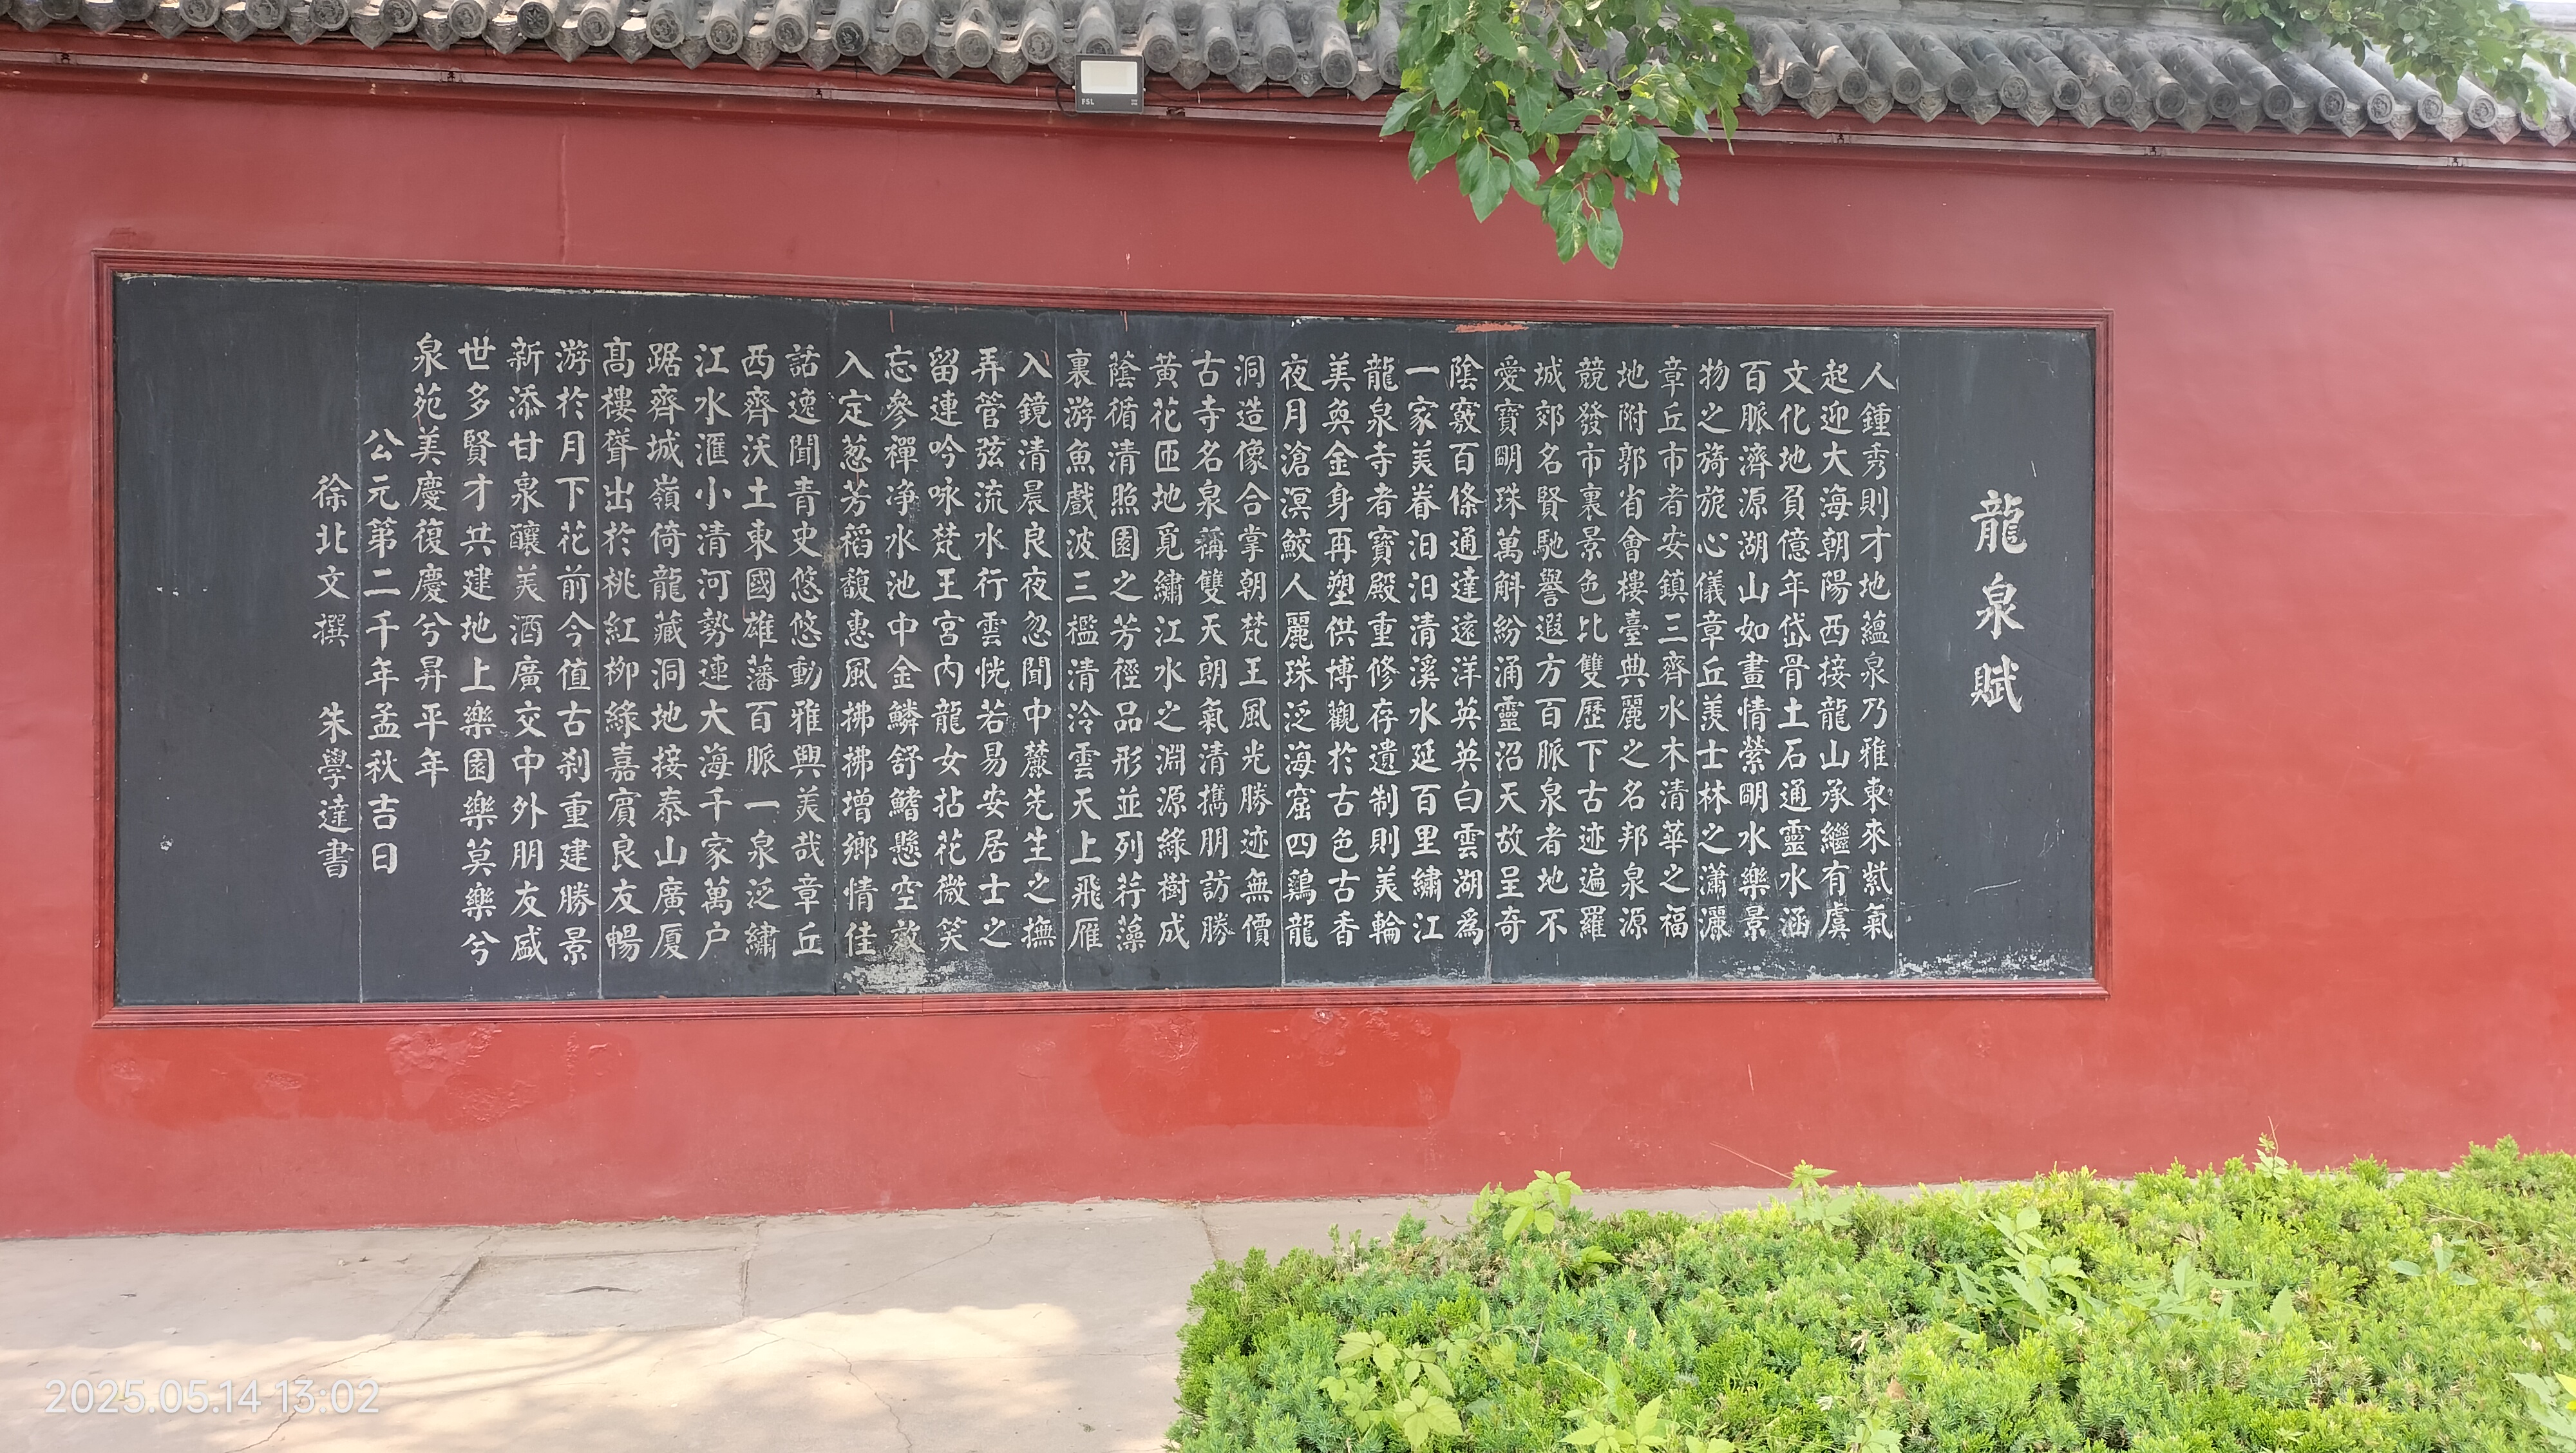 龍泉賦
人鍾秀則才地蘊泉乃雅東來紫氣
起迎大海朝陽西接龍山承繼有虞
文化地負億年岱骨土石通靈水涵
百脈濟源湖山如畫情縈明水樂景
物之旖旎心儀章丘羨士林之瀟灑
章丘市者安鎮三齊水木清華之福
地附郭省會樓臺典麗之名邦泉源
競發市裏景色比雙歷下古迹遍羅
城郊名賢馳譽遐方百脈泉者地不
愛寶明珠萬斛紛涌靈沼天故呈奇
陰竅百條通達遠洋英英白雲湖為
一家美眷汩汩清溪水延百里繡江
龍泉寺者寶殿重修存遺制則美輪
美奐金身再塑供博觀於古色古香
夜月滄溟鮫人麗珠泛海窟四鶏龍
洞造像合掌朝梵王風光勝迹無價
古寺名泉稱雙天朗氣清擕朋訪勝
黃花匝地覓繡江水之淵源綠樹成
蔭循清照園之芳徑品形並列荇藻
裏游魚戲波三檻清泠雲天上飛雁
入鏡清晨良夜忽聞中麓先生之撫
弄管弦流水行雲恍若易安居士之
留連吟咏梵王宮內龍女拈花微笑
忘參禪净水池中金鱗舒鰭懸空放
入定葱芳稻馥惠風拂拂增鄉情佳
話逸聞青史悠悠動雅興美哉章丘
西齊沃土東國雄藩百脈一泉泛繡
江水滙小清河勢連大海千家萬户
踞齊城嶺倚龍藏洞地接泰山廣厦
高樓聳出於桃紅柳綠嘉賓良友暢
游於月下花前今值古刹重建勝景
新添甘泉釀美酒廣交中外朋友盛
世多賢才共建地上樂園樂莫樂兮
泉苑美慶復慶兮昇平年
公元第二千年孟秋吉日
徐北文撰 朱學達書
FSL
2025.05.14 13:02